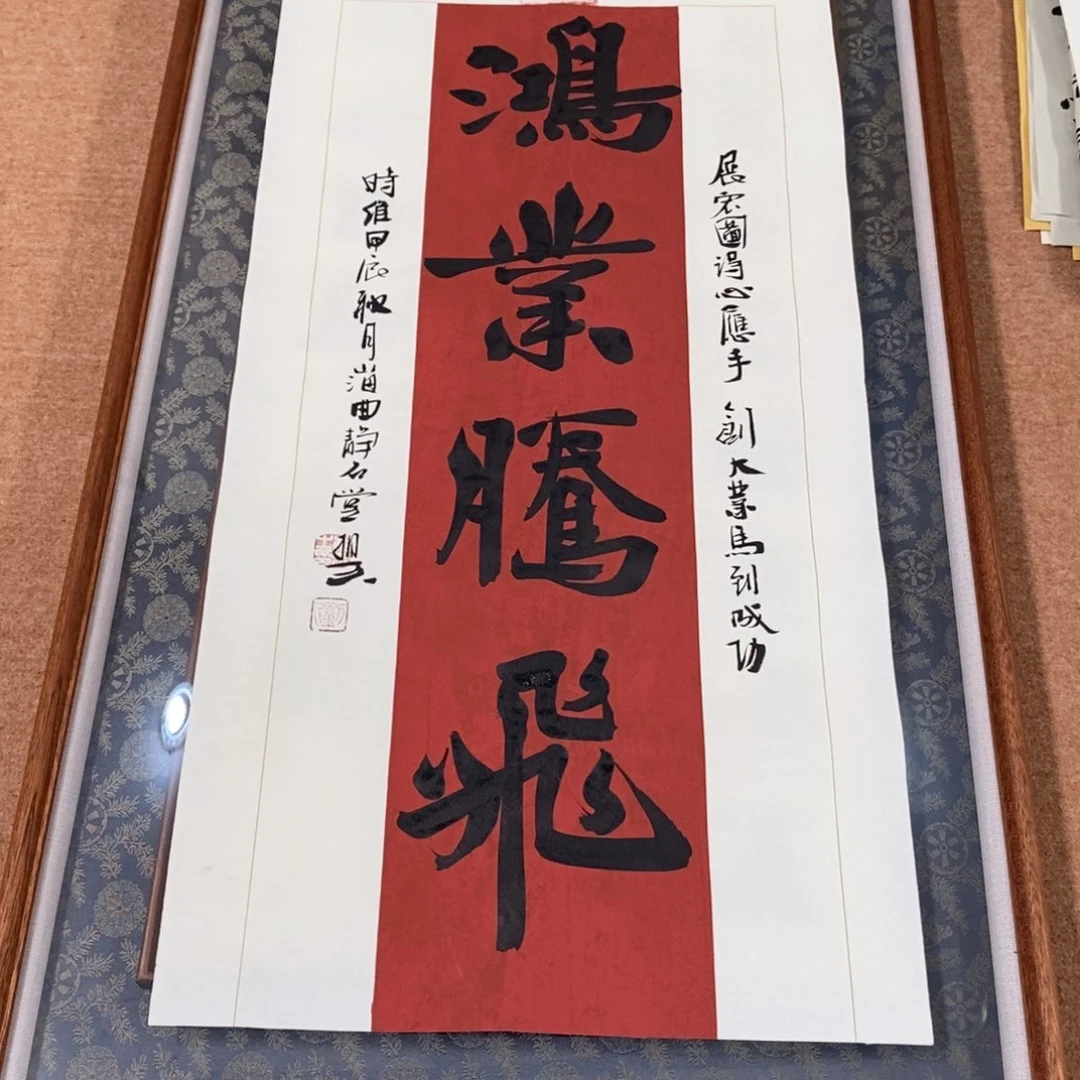 展宏圖得心應手 創大業馬到成功
鴻業騰飛
時維甲辰秋月淄曲靜石堂